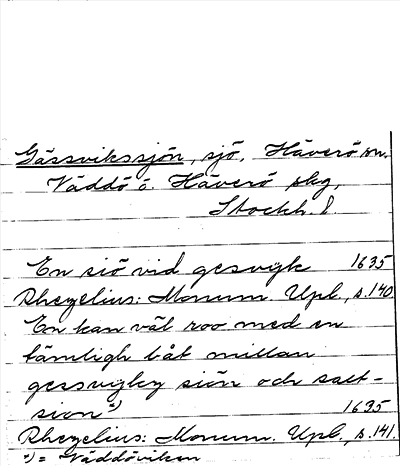 Gässvikssjön, sjö, Häverö sn.
Väddö o. Häverö skg,
Stockh. l.
En siö vid gesvyk 1635
Rhezelius: Monum. Upl., s. 140
En kan väl roo med en
tämligh båt millan
gessvyky siön och salt-
sion*) 1635
Rhezelius: Monum. Upl., s. 141.
*) = Väddöviken